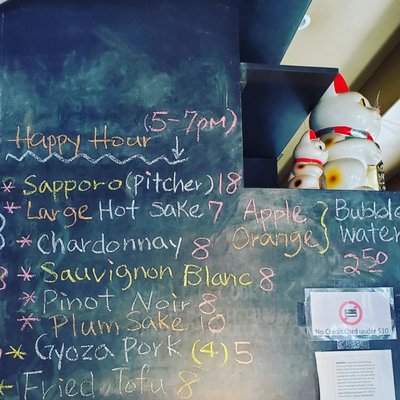 Happy Hour (5-7pm)
* Sapporo (pitcher) 18
* Large Hot Sake 7
* Chardonnay 8
* Sauvignon Blanc 8
* Pinot Noir 8
* Plum Sake 10
* Gyoza Pork (4) 5
* Fried Tofu 8
Apple
Orange } Bubble water
2.50
No Credit Card under $10